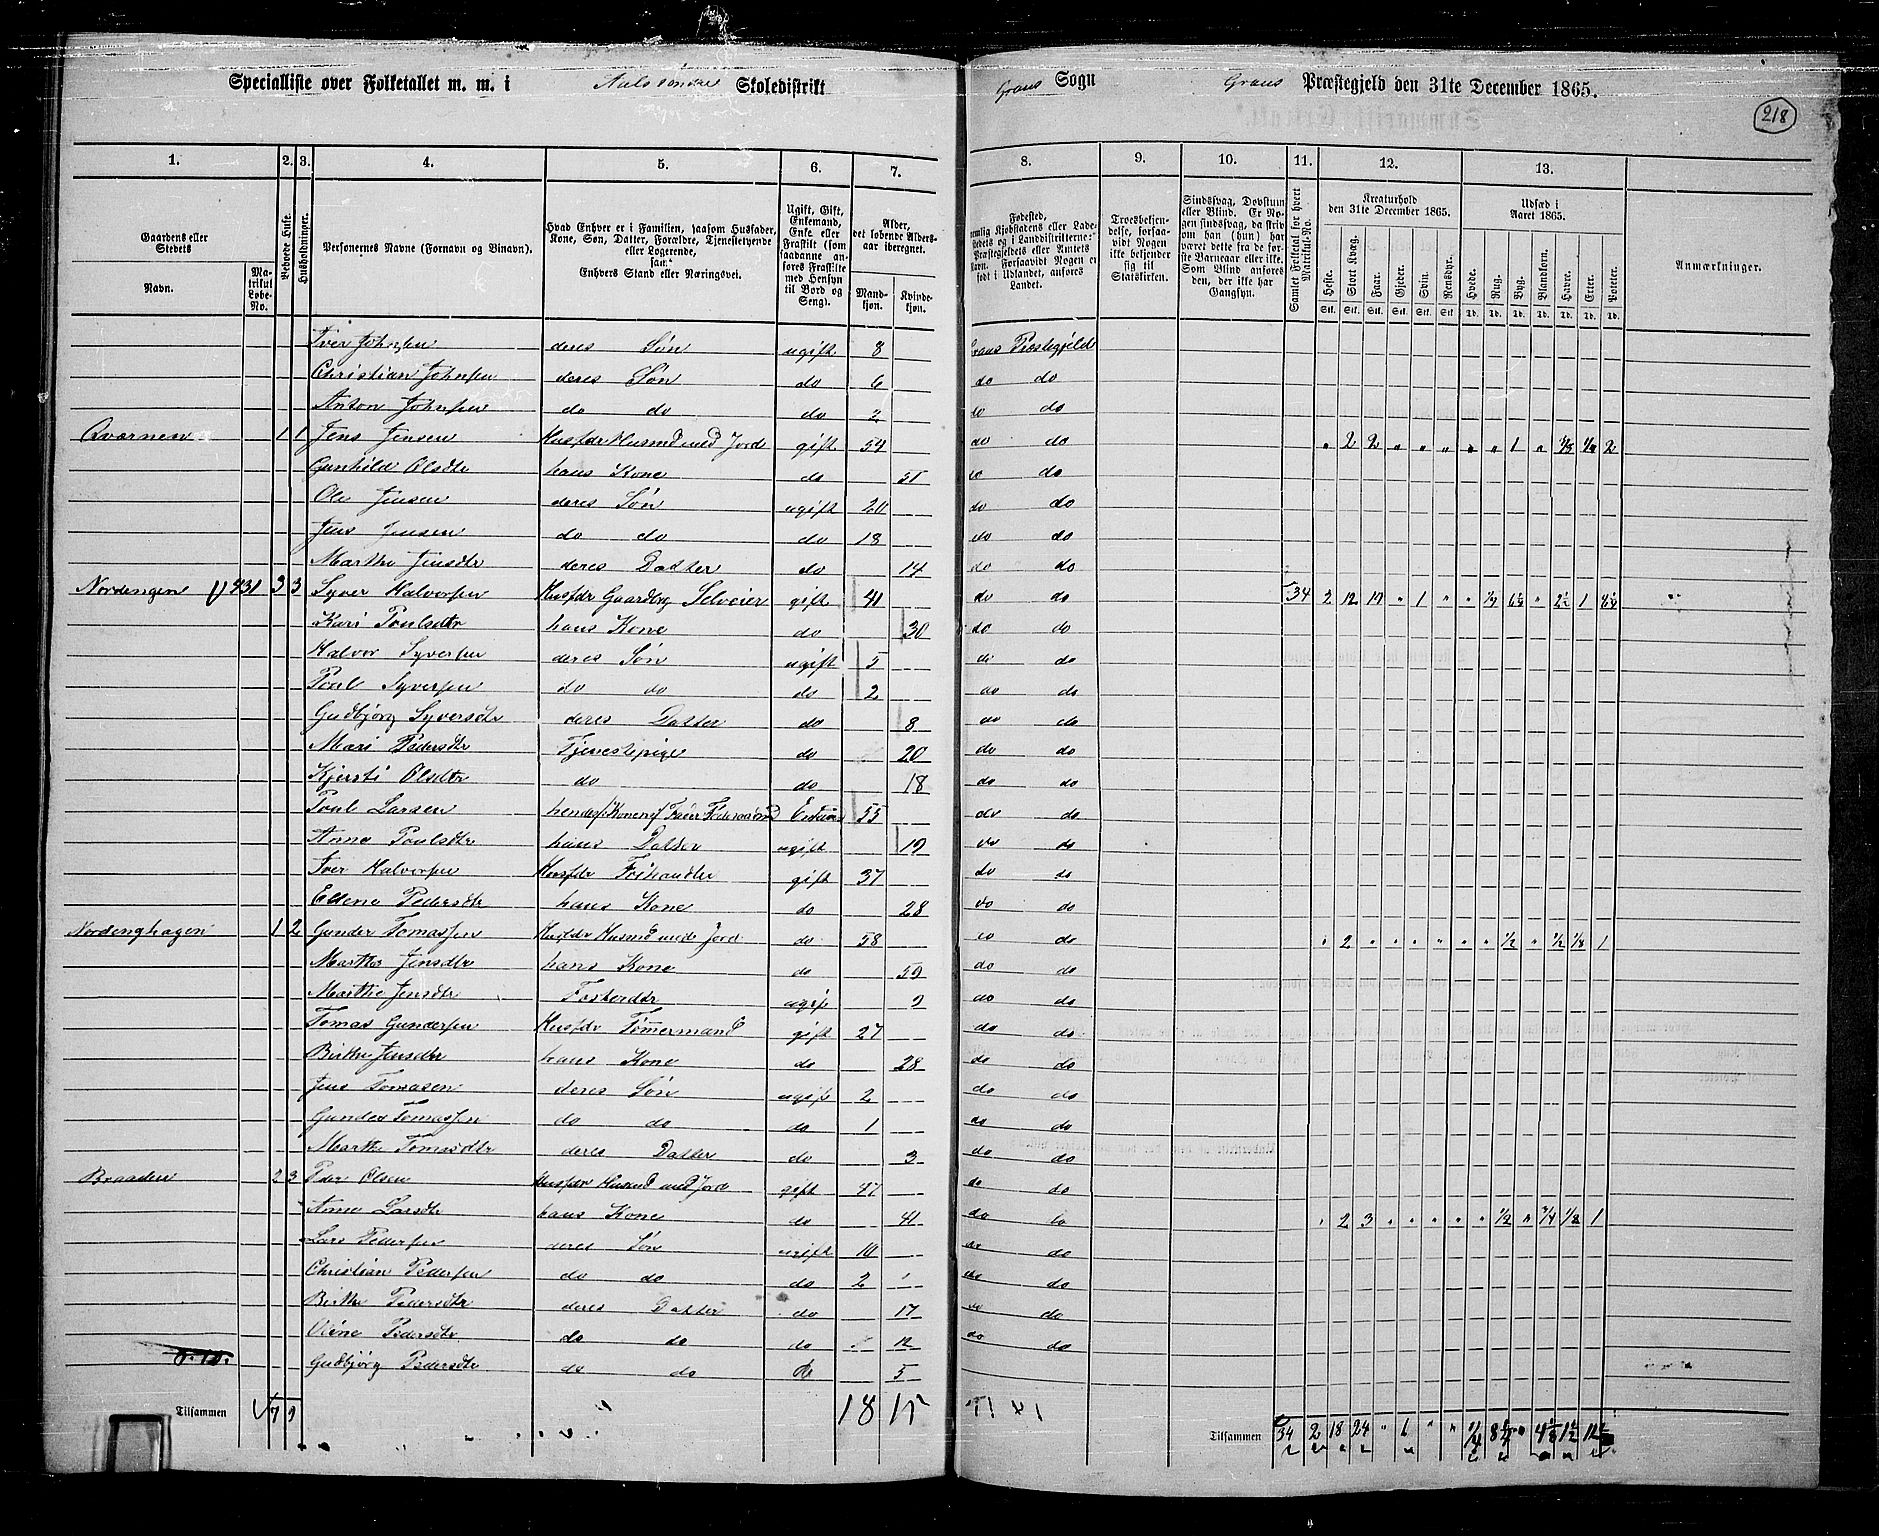 218
Specialliste over Folketallet m. m. i Skoledistrikt Grans Sogn Grans Præstegjeld den 31te December 1865.
1. 2. 3. 4. 5. 6. 7. 8. 9. 10. 11. 12. 13.
Gaardens eller Stedets Navn. Matrikul Løbe-No. Beboede Huse. Husholdninger. Personernes Navne (Fornavn og Binavn). Hvad Enhver er i Familien, saasom Husfader, Kone, Søn, Datter, Forældre, Tjenestetyende eller Logerende, samt Enhvers Stand eller Næringsvei. Ugift, Gift, Enkemand, Enke eller Fraskilt (som saadanne anføres Fraskilte med Hensyn til Bord og Seng). Alder, det løbende Alders-aar iberegnet. Mandkjøn. Kvindekjøn.
Fødested, nemlig Kjøbstadens eller Ladestedets og i Landdistrikterne: Præstegjeldets eller Amtets Navn. Forsaavidt Nogen er født i Udlandet, anføres Landet. Troesbekjendelse, forsaavidt Nogen ikke bekjender sig til Statskirken. Sindssvag, Døvstum eller Blind. Er Nogen sindssvag, da skriv om han (hun) har været dette fra de første Barneaar eller ikke. Som Blind anføres den, der ikke har Gangsyn. Samlet Folketal for hvert Matrikul-No. Kreaturhold den 31te December 1865. Heste. Stort Kvæg. Faar. Gjeder. Svin. Rensdyr. Udsæd i Aaret 1865. Hvede. Rug. Byg. Blandkorn. Havre. Erter. Poteter. Anmærkninger.
Iver Johnsen deres Søn ugift 8 Grans Præstegjeld
Christian Johnsen deres Søn do 6 do do
Anton Johnsen do do do 2 do do
Qvarnen 1 1 Jens Jensen Husfdr Husmd med Jord gift 54 do do " 2 2 " " " " " 1 "
Gunhild Olsdtr hans Kone do 51 do do
Ole Jensen deres Søn ugift 20 do do
Jens Jensen do do do 18 do do
Marthe Jensdtr deres Datter do 14 do do
Nordengen 431 3 3 Syver Halvorsen Husfdr Gaardbr Selveier gift 41 do do 34 2 12 19 " 1 " "
Kari Poulsdtr hans Kone do 30 do do
Halvor Syversen deres Søn ugift 5 do do
Poul Syversen do do do 2 do do
Gudbjørg Syversdtr deres Datter do 8 do do
Mari Pedersdtr Tjenestepige do 20 do do
Kjersti Olsdtr do do 18 do do
Poul Larsen 55 do do
Anne Poulsdtr hans Datter ugift 19 do do
Iver Halvorsen Husfdr gift 37 do do
Eline Pedersdtr hans Kone do 28 do do
Nordenghagen 1 2 Gunder Tomassen Husfdr Husmd med Jord do 58 do do " 2 " " " " " " 1/2 " 1/2 1/8 1
Marthe Jensdtr hans Kone do 59 do do
Marthe Jensdtr Fosterdtr ugift 9 do do
Tomas Gundersen Husfdr Tømermand gift 27 do do
Birthe Jensdtr hans Kone do 28 do do
Jens Tomasen deres Søn ugift 2 do do
Gunder Tomassen do do do 1 do do
Marthe Tomasdtr deres Datter do 3 do do
Braaden 2 3 Peder Olsen Husfdr Husmd med Jord gift 47 do do
Anne Larsdtr hans Kone do 41 do do " 2 3 " " " " " 1/2 " 3/4 1/8 1
Lars Pedersen deres Søn ugift 10 do do
Christian Pedersen do do do 2 do do
Birthe Pedersdtr deres Datter do 17 do do
Oline Pedersdtr do do do 12 do do
Gudbjørg Pedersdtr do do do 5
Tilsammen 7 9 18 15
Tilsammen 34 2 18 24 " 1 " "